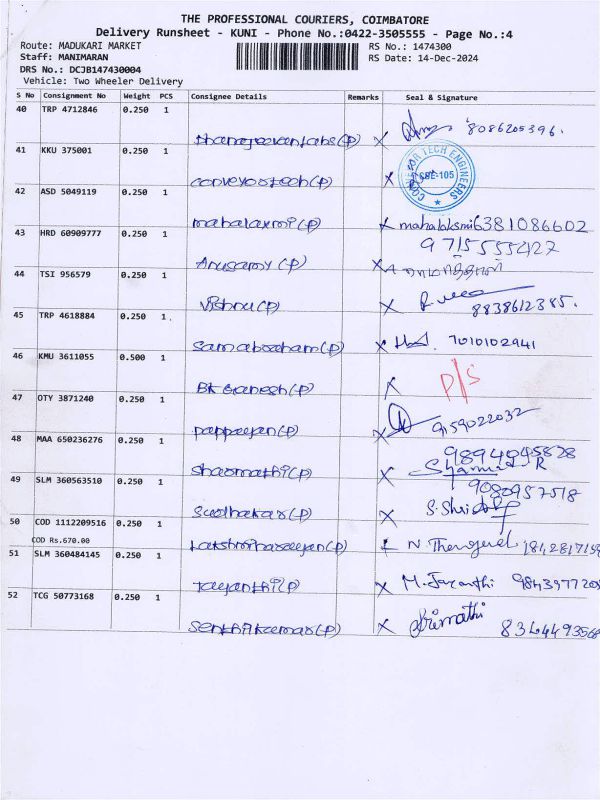 THE PROFESSIONAL COURIERS, COIMBATORE
Delivery Runsheet - KUNI - Phone No.:0422-3505555 - Page No.:4
Route: MADUKARI MARKET RS No.: 1474300
Staff: MANIMARAN RS Date: 14-Dec-2024
DRS No.: DCJB147430004
Vehicle: Two Wheeler Delivery
S No Consignment No Weight PCS Consignee Details Remarks Seal & Signature
40 TRP 4712846 0.250 1
8086205396.
41 KKU 375001 0.250 1
conveyortech(p) X TECH ENGINEERS SBE-105
42 ASD 5049119 0.250 1
mahalaxmi(p) X mahalaksmi 6381086602
43 HRD 60909777 0.250 1 9715555427
Arusamy(p) X
44 TSI 956579 0.250 1
Vishnu(p) X 8838612385.
45 TRP 4618884 0.250 1
Samabraham(p) X 7010102941
46 KMU 3611055 0.500 1
BK Ganesh(p) X P/S
47 OTY 3871240 0.250 1
pappayan(p) X 9159022032
48 MAA 650236276 0.250 1 9894045828
Sharmathi(p) X R
49 SLM 360563510 0.250 1 9080957518
Sudhakar(p) X S.
50 COD 1112209516 0.250 1
COD Rs.670.00 Lakshminarayan(p) X N.
51 SLM 360484145 0.250 1
Jayanthi(p) X M. Jayanthi
52 TCG 50773168 0.250 1
Senthilkumar(p) X